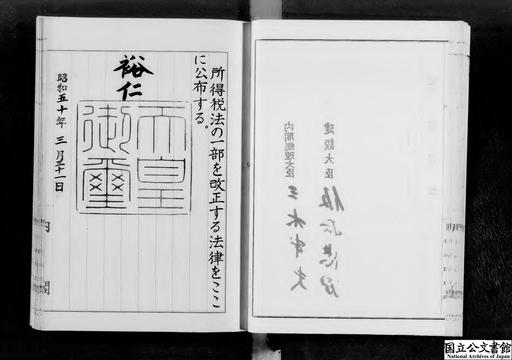 建設大臣
仮谷忠男
内閣総理大臣
三木武夫
所得税法の一部を改正する法律をここ
に公布する。
裕仁
天皇
御璽
昭和五十年三月三十一日
内閣
国立公文書館
National Archives of Japan